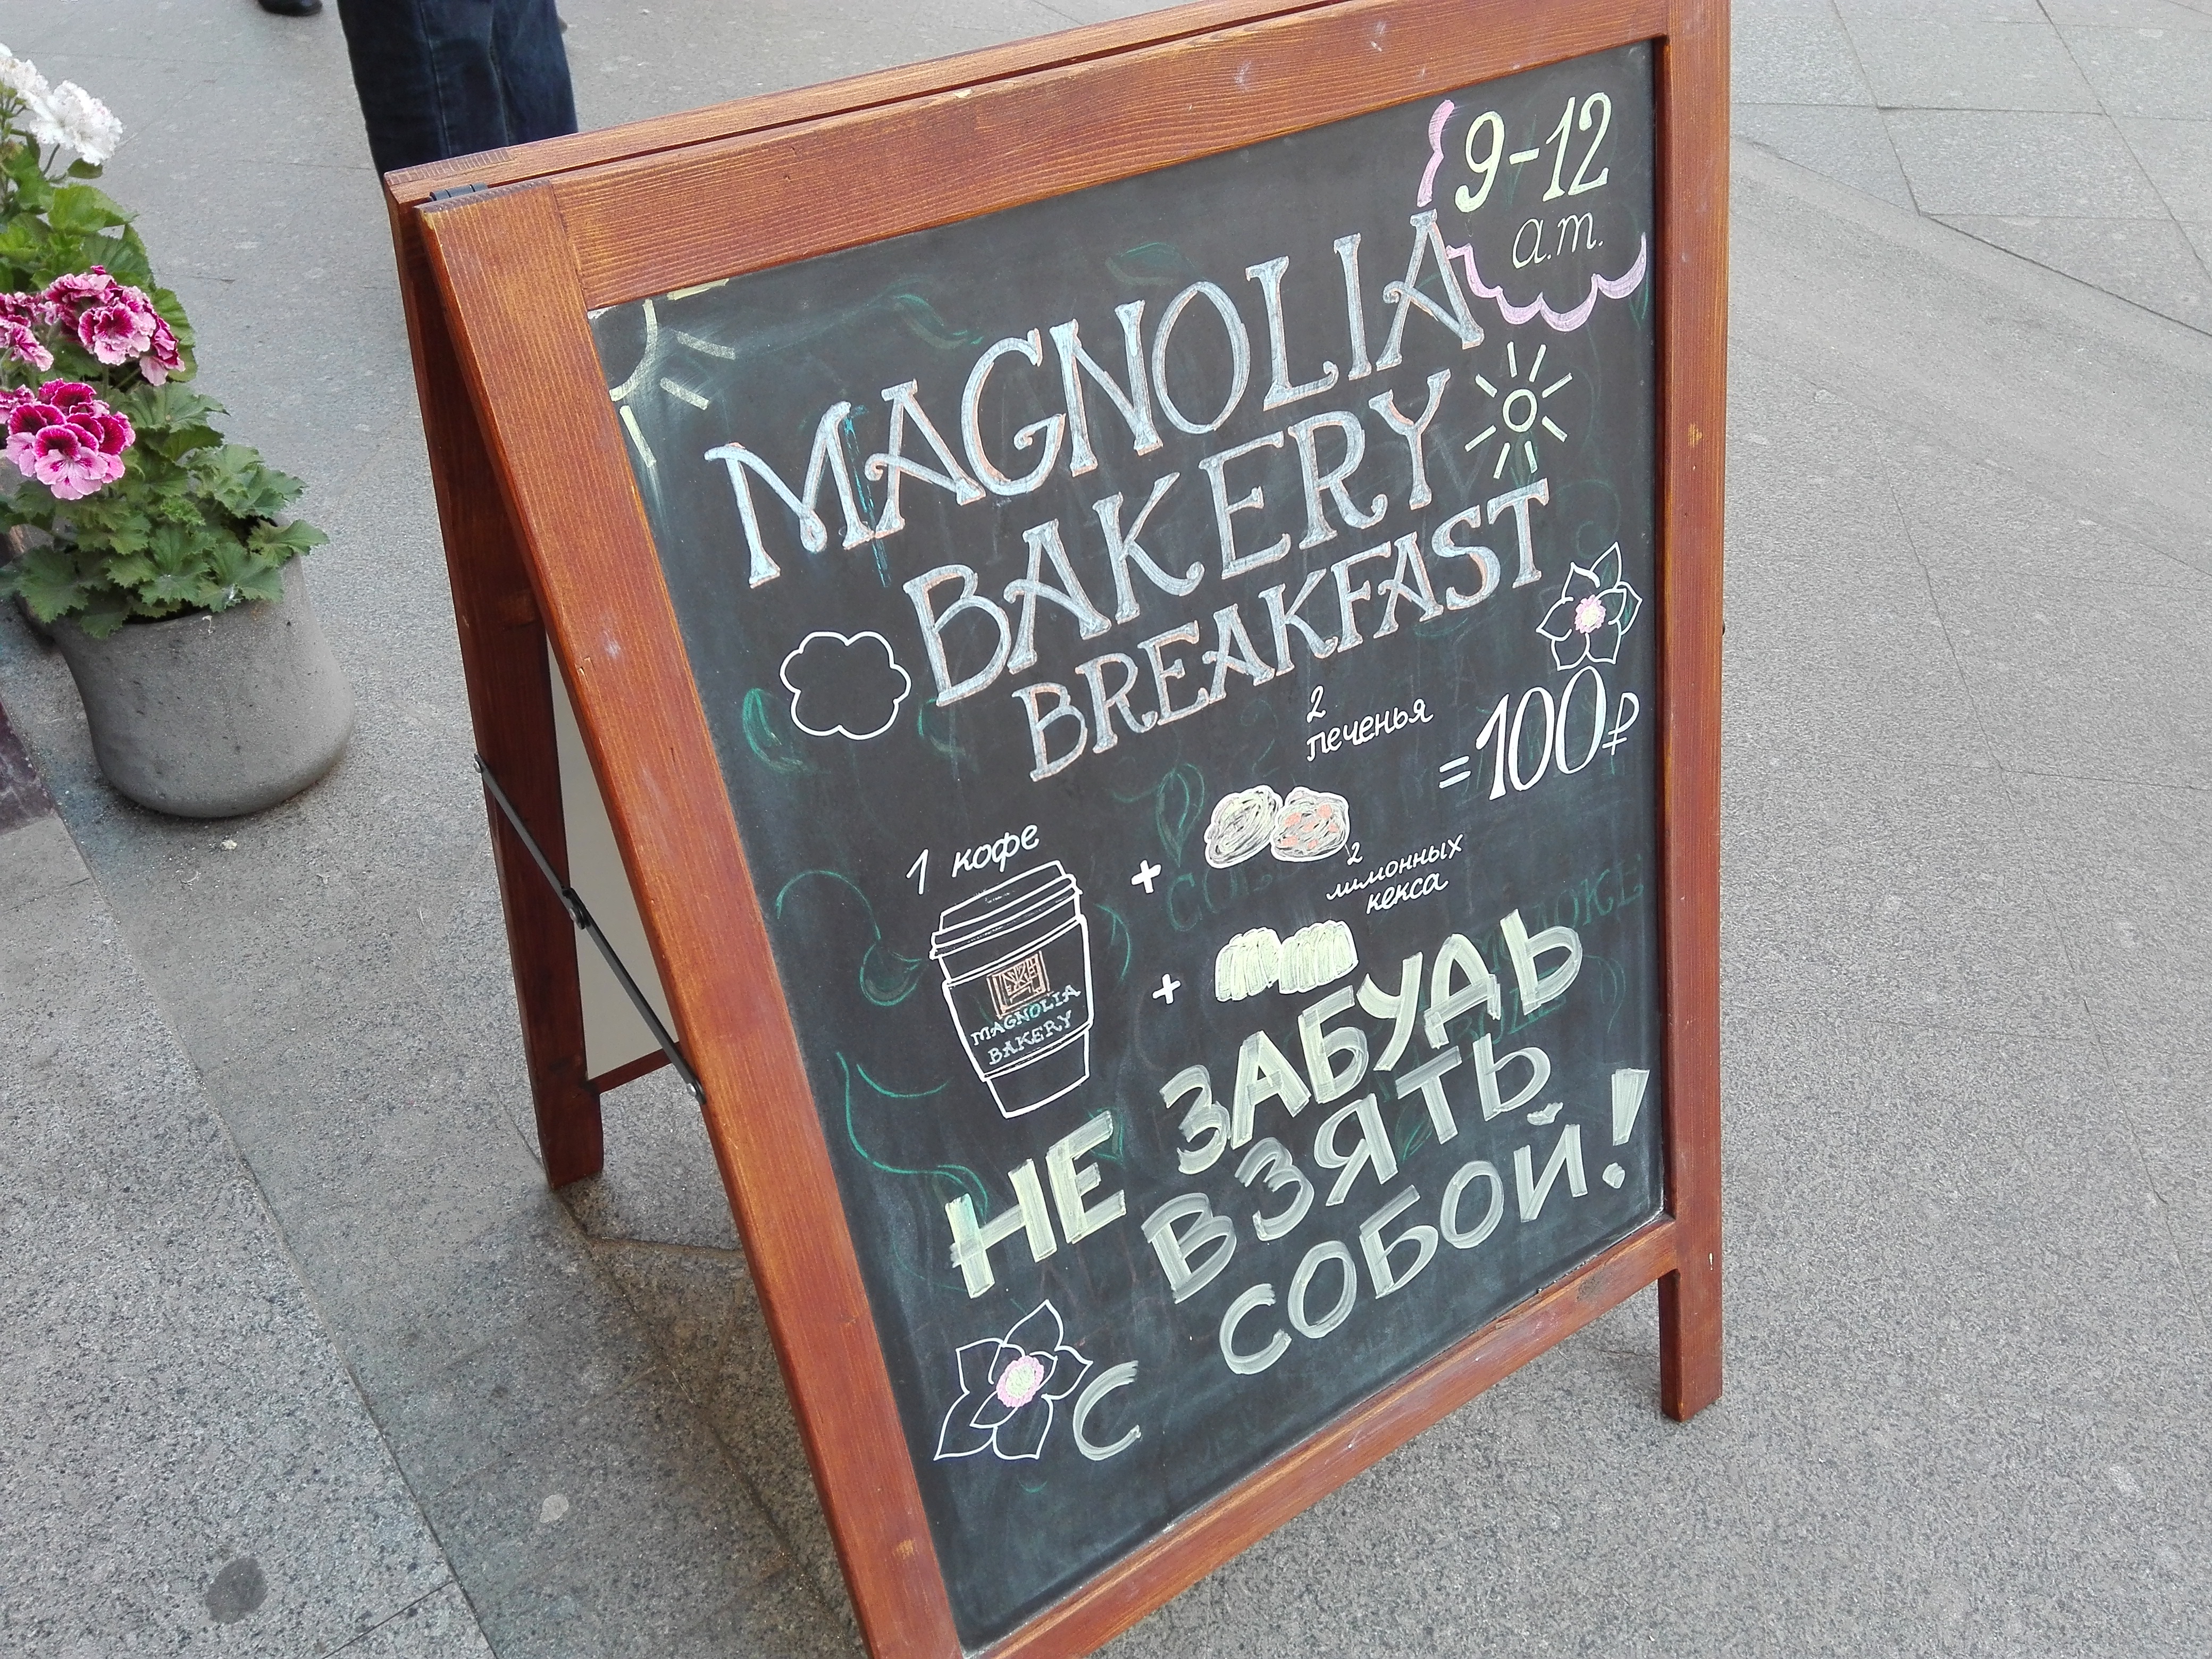 9-12
a.m.
MAGNOLIA
BAKERY
BREAKFAST
2
печенья
=100₽
1 кофе
+
2
лимонных
кекса
+
MAGNOLIA
BAKERY
НЕ ЗАБУДЬ
ВЗЯТЬ
С СОБОЙ!